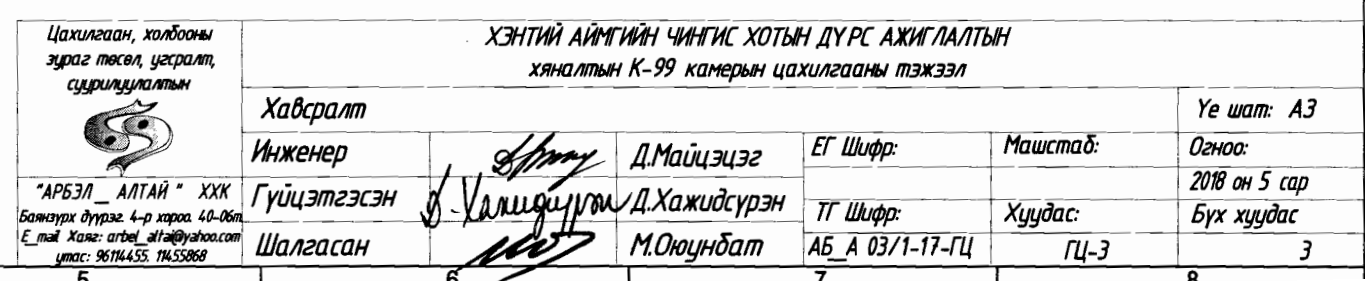 Цахилгаан, холбооны
зураг төсөл, угсралт,
суурилуулалтын
"АРБЭЛ_ АЛТАЙ " ХХК
Баянзүрх дүүрэг. 4-р хороо. 40-06т
E_mail Хаяг: arbel_altai@yahoo.com
утас: 96114455. 11455868
ХЭНТИЙ АЙМГИЙН ЧИНГИС ХОТЫН ДҮРС АЖИГЛАЛТЫН
хяналтын К-99 камерын цахилгааны тэжээл
Хавсралт
Үе шат: АЗ
Инженер
Д.Майцэцэг
ЕГ Шифр:
Машстаб:
Огноо:
2018 он 5 сар
Гүйцэтгэсэн
Д.Хажидсүрэн
ТГ Шифр:
Хуудас:
Бүх хуудас
Шалгасан
М.Оюунбат
АБ_А 03/1-17-ГЦ
ГЦ-3
3
5
6
7
8